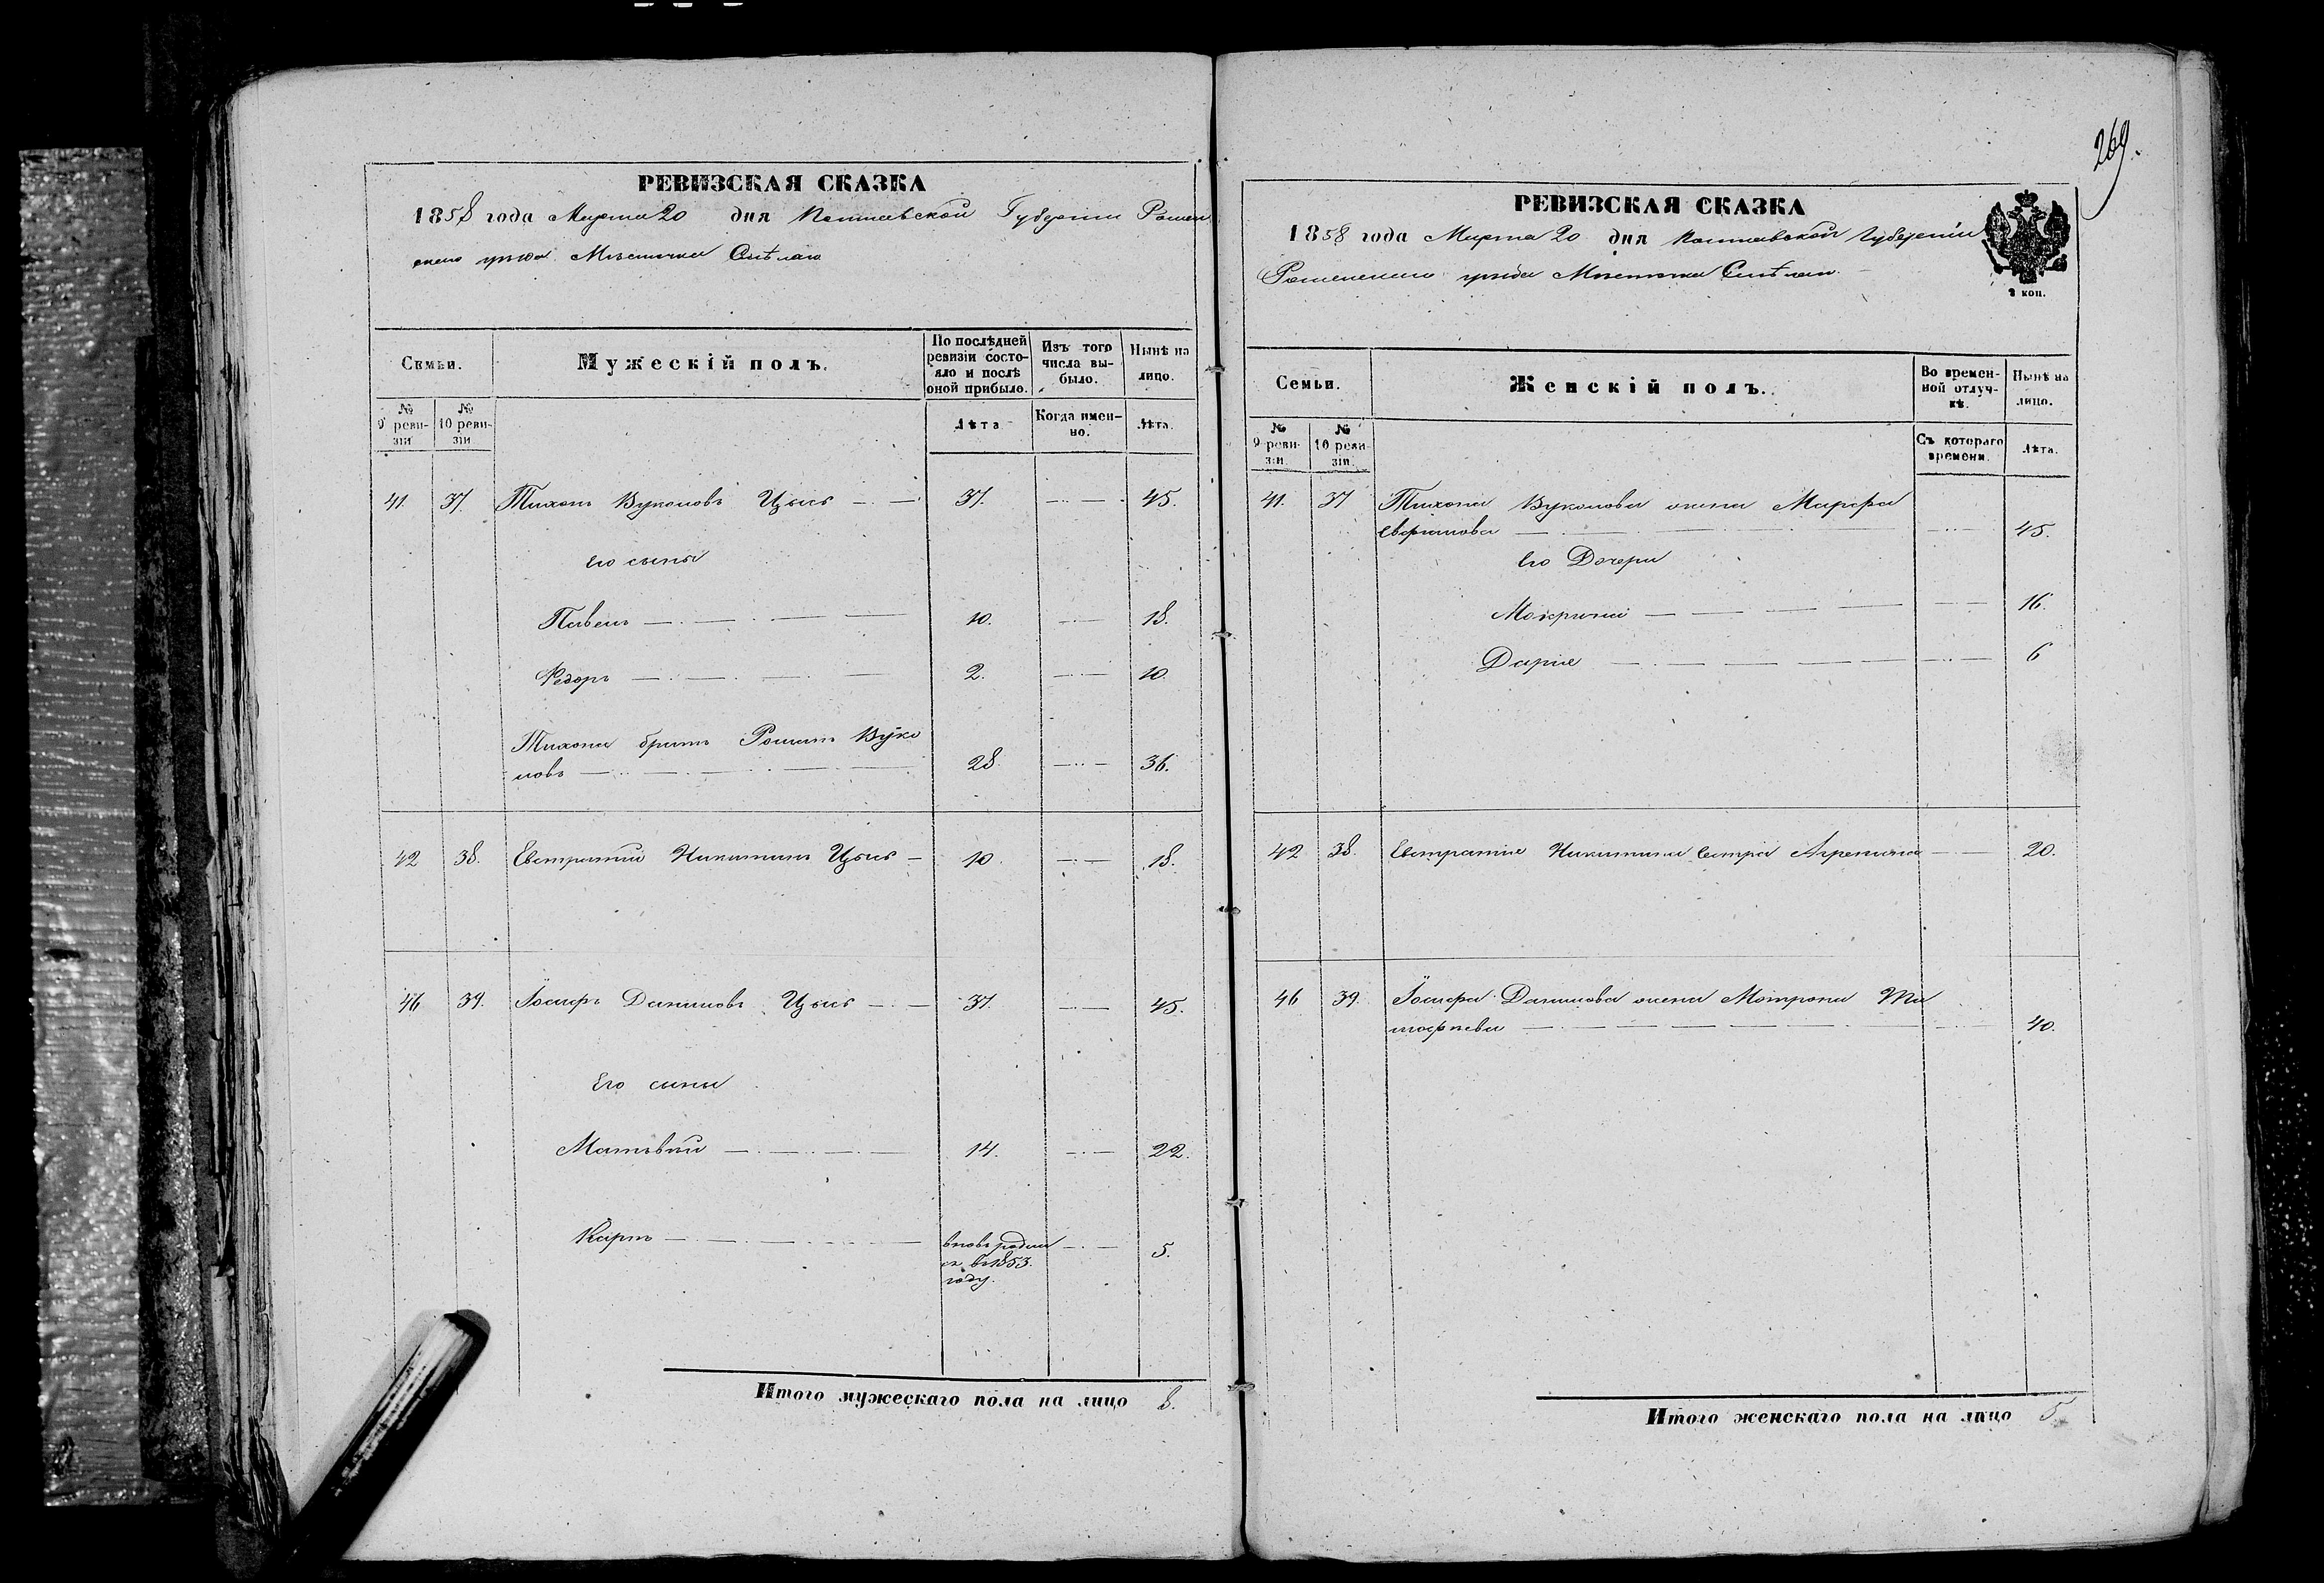 269.
РЕВИЗСКАЯ СКАЗКА
1858 года Марта 20 дня Полтавской Губерніи Ромен
скаго уѣзда Мѣстечка Смѣлаго
Семьи.
Мужескій полъ.
По послѣдней
ревизіи состо-
яло и послѣ
оной прибыло.
Изъ того
числа вы-
было.
Нынѣ на
лицо.
№
9 реви-
зіи
№
10 реви-
зіи
Лѣта
Когда имен-
но.
Лѣта.
41. 37. Тихонъ Вуколовъ Цысь 37. 45.
Его сыны
Павелъ 10. 18.
Федоръ 2. 10.
Тихона братъ Романъ Вуко
ловъ 28. 36.
42 38. Евстратій Никитинъ Цысь 10. 18.
46 39. Іосифъ Даниловъ Цысь 37. 45.
Его сыны
Матвѣй 14. 22.
Карпъ вновь родил 5.
ся въ 1853.
году.
Итого мужескаго пола на лицо 8.
РЕВИЗСКАЯ СКАЗКА
1858 года Марта 20 дня Полтавской Губерніи
Роменскаго уѣзда Мѣстечка Смѣлаго.
2 коп.
Семьи.
Женскій полъ.
Во времен-
ной отлуч-
кѣ.
Нынѣ на
лицо.
№
9 реви-
зіи.
№
10 реви-
зіи.
Съ котораго
времени.
Лѣта.
41. 37 Тихона Вуколова жена Марфа
Ефимова 45.
Его Дочери
Мокрина 16.
Дарія 6
42 38. Евстратія Никитина сестра Агрепина 20.
46 39. Іосифа Данилова жена Мотрона Ти
мофѣева 40.
Итого женскаго пола на лицо 5.